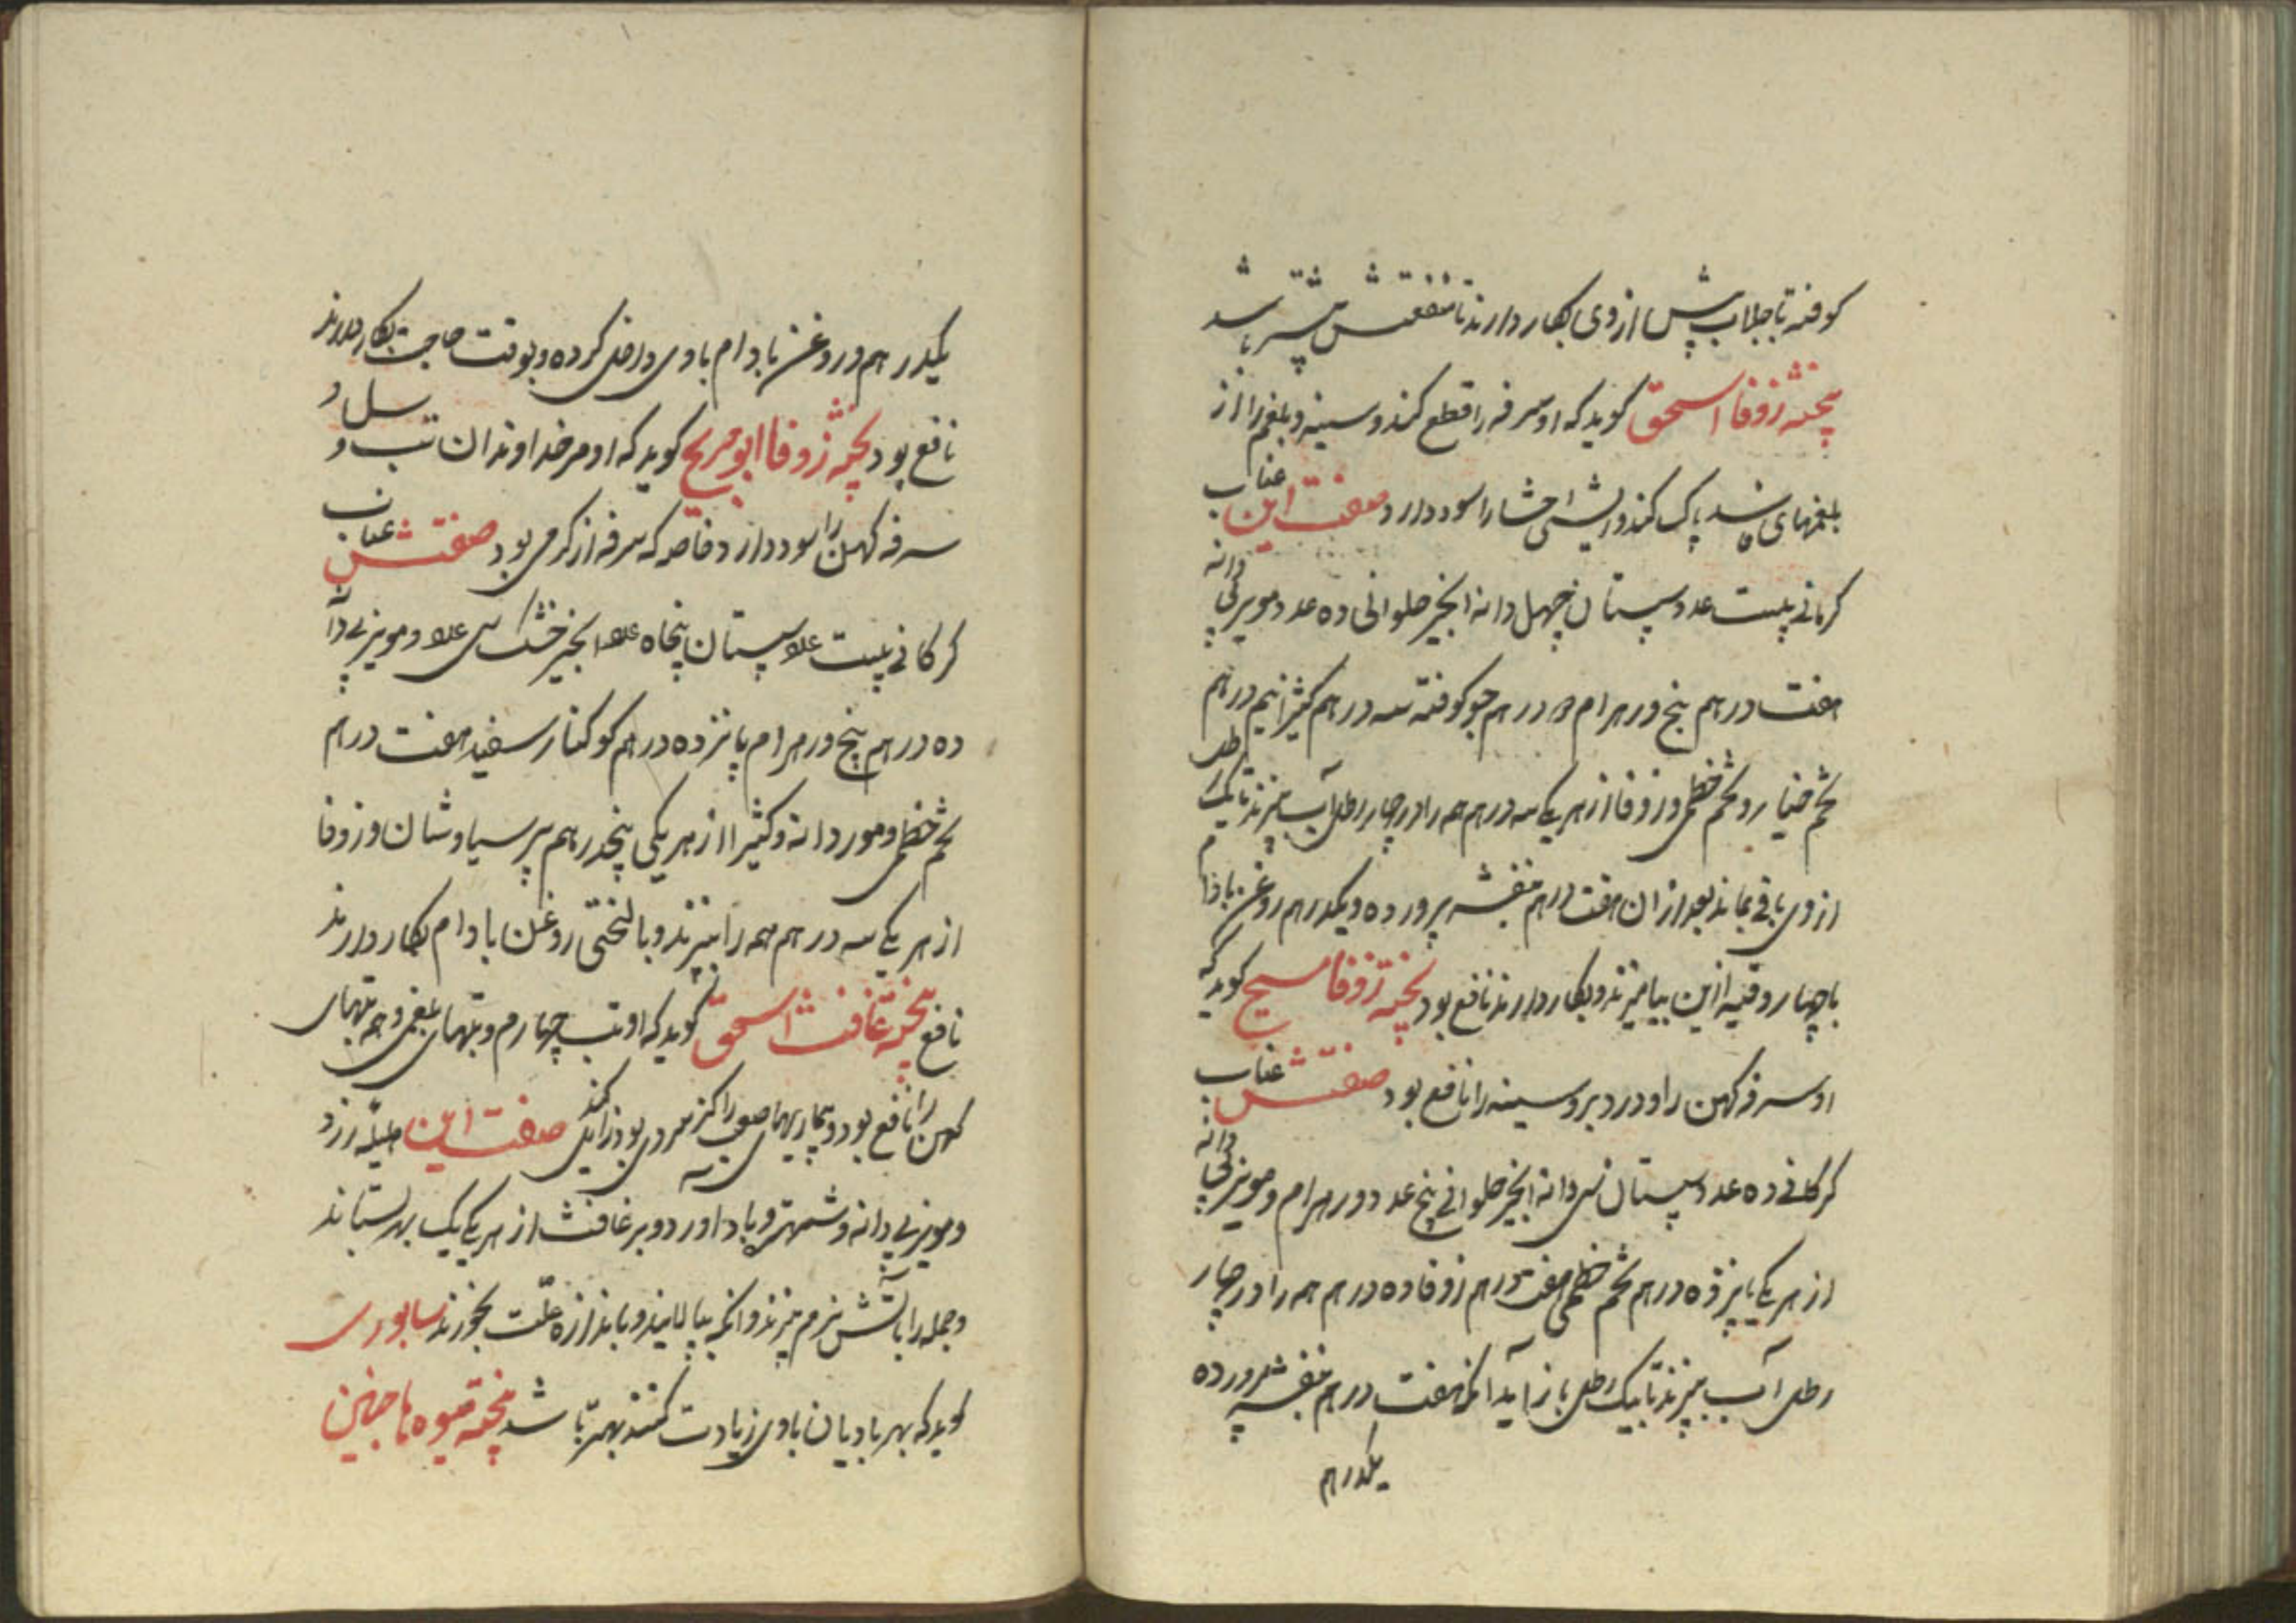 کوفته با جلاب پیش از وی بکار دارند تا منفعتش بیشتر باشد
پخته زوفا اسحق گوید که او سرفه را قطع کند و سینه و بلغم را از
بلغمهای فاسد پاک کند و را سود دارد صفت این عناب
کرمانی بیست عدد سپستان چهل دانه انجیر حلوانی ده عدد مویز بی دانه
هفت درهم بنج در هرام ده درهم جو کوفته سه درهم کثیرا نیم درهم
تخم خیار و تخم خطمی و زوفا از هر یکی سه درهم همه را در چهار رطل آب بپزند تا یک رطل
از وی باقی بماند بعد از ان هفت درهم بنفشه پرورده و یکدرهم روغن بادام
با چهار وقیه ازین بیامیزند و بکار دارند نافع بود پخته زوفا مسیح گوید که
او سرفه کهن را و درد بر و سینه را نافع بود صفتش عناب
کرکانی ده عدد سپستان سی دانه انجیر حلوانی پنج عدد در هرام و مویز بی دانه
از هر یکی پانزده درهم تخم خطمی هفت درهم زوفا ده درهم همه را در چهار
رطل آب بپزند تا بیک رطل باز آید انکه هفت درهم بنفشه پرورده
یکدرهم
یکدرهم و روغن بادام با وی داخل کرده و بوقت حاجت بکار دارند
نافع بود پخته زوفا ابو مریح گوید که او مر خداوندان تب و سل و
سرفه کهن را سود دارد خاصه که سرفه از گرمی بود صفتش عناب
کرکانی بیست عدد سپستان پنجاه عدد انجیر خشک سی عدد و مویز بی دانه
ده درهم بنج در هرام پانزده درهم کوکنار سفید هفت درهم
تخم خطمی و مورد دانه و کثیرا از هر یکی پنجدرهم پرسیاوشان و زوفا
از هر یکی سه درهم همه را بپزند و با لختی روغن بادام بکار دارند
نافع پخته غافث اسحق گوید که او تب چهارم و تبهای بلغمی و همه تبهای
کهن را نافع بود و بیماریهای صعب را کز سردی بود زایل کند صفت این هلیله زرد
و مویز بی دانه و شهتره و باداورد و بر غافث از هر یکی یک بهر بستانند
و جمله را بآتش نرم بپزند و انکه بپالایند و باندازه علت بخورند سابوری
گوید که بهر بادیان با وی زیادت کنند بهتر باشد پخته میوه ها جنین